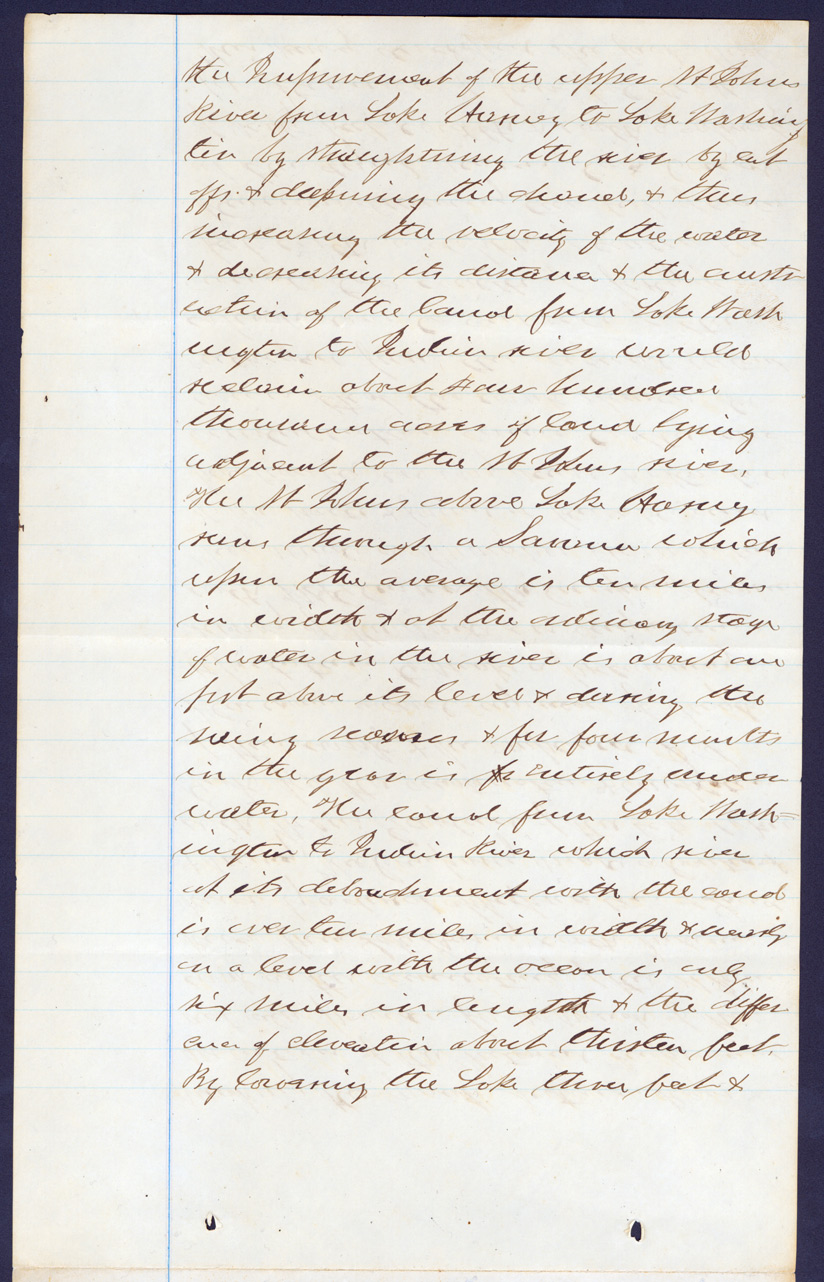 the Improvement of the upper St Johns
River from Lake Harney to Lake Washing
ton by straightning the river by cut
offs. & deepning the channel, & thus
increasing the velocity of the water
& decreasing its distance & the constr
uction of the Canal from Lake Wash
ington to Indian river would
reclaim about Four hundred
thousand acres of land lying
adjacent to the St Johns river.
The St Johns above Lake Harney
runs through a Savanna which
upon the average is ten miles
in width & at the ordinary stage
of water in the river is about one
foot above its level & during the
rainy seasons & for four months
in the year is entirely under
water. The canal from Lake Wash=
ington to Indian River which river
at its debouchment with the canal
is over ten miles in width & nearly
on a level with the ocean is only
six miles in length & the differ
ence of elevation about thirteen feet.
By lowering the Lake three feet &